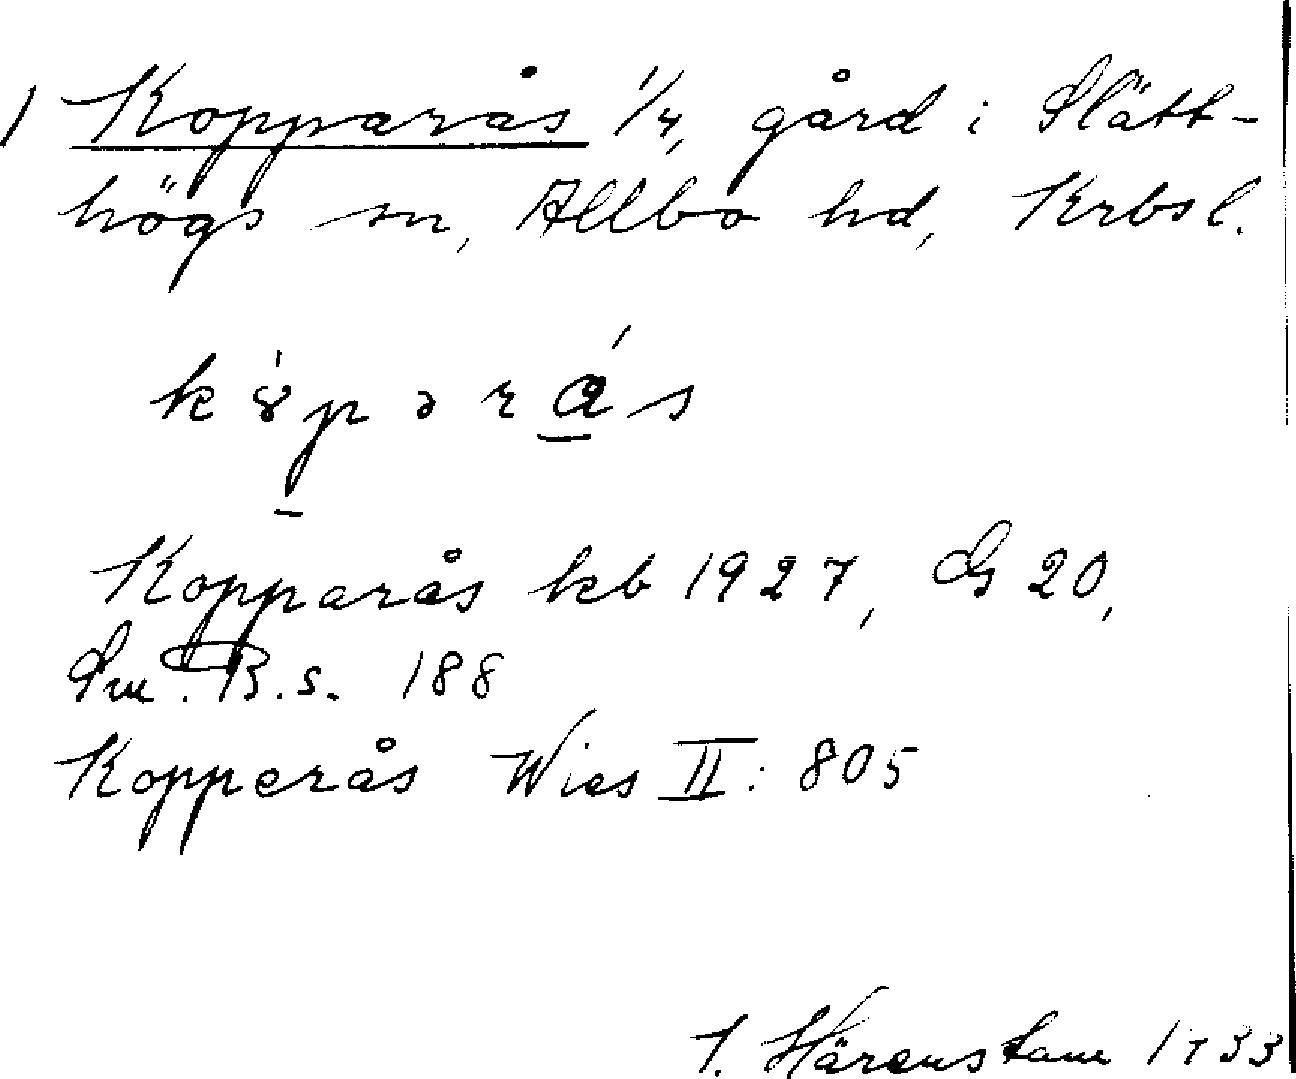 1 Kopparås 1/4, gård i Slätt-
högs sn, Allbo hd, Krbsl.
Kopparås kb 1927, G 20,
Sm. B. s. 188
Kopperås Wies II: 805
Härenstam 1933